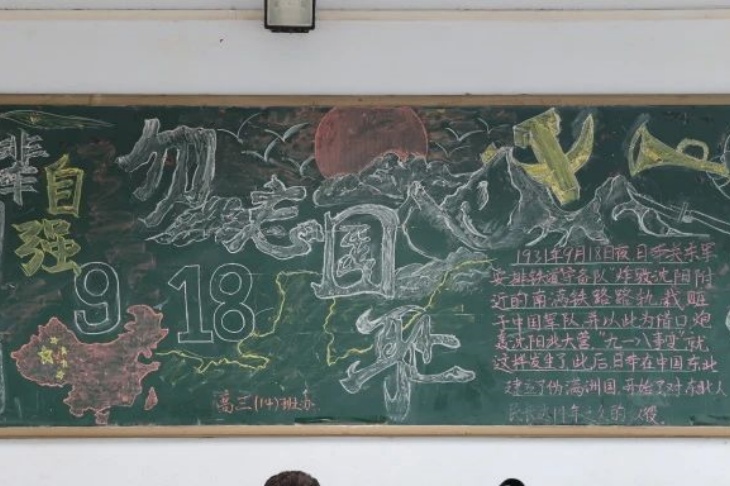 自强
勿忘
国耻
9 18
1931年9月18日夜日本关东军
安排铁道守备队"炸毁沈阳附
近的南满铁路路轨,栽赃
于中国军队,并以此为借口炮
轰沈阳北大营"九一八事变"就
这样发生了,此后日本在中国东北
建立了伪满洲国,开始了对东北人
民长达14年之久的
高三(14)班办